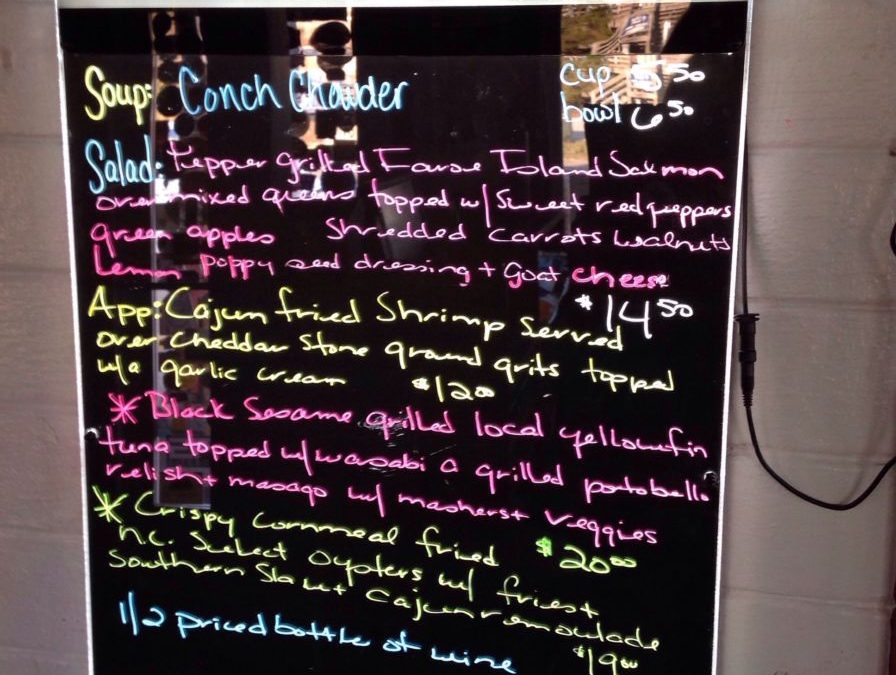 Soup: Conch Chowder cup 5 50
bowl 6 50
Salad: Pepper grilled Faroe Island Salmon
over mixed greens topped w/ Sweet red peppers
green apples Shredded Carrots walnuts
Lemon poppy seed dressing + goat cheese
$14 50
App: Cajun fried Shrimp Served
over cheddar Stone ground grits topped
w/a garlic cream $12 00
* Black Sesame grilled local yellowfin
tuna topped w/ wasabi a grilled portobello
relish + masago w/ mashers + veggies
$20 00
* Crispy Cornmeal fried
n.c. Select Oysters w/ fries +
Southern Slaw + Cajun remoulade
$19 00
1/2 priced bottle of wine